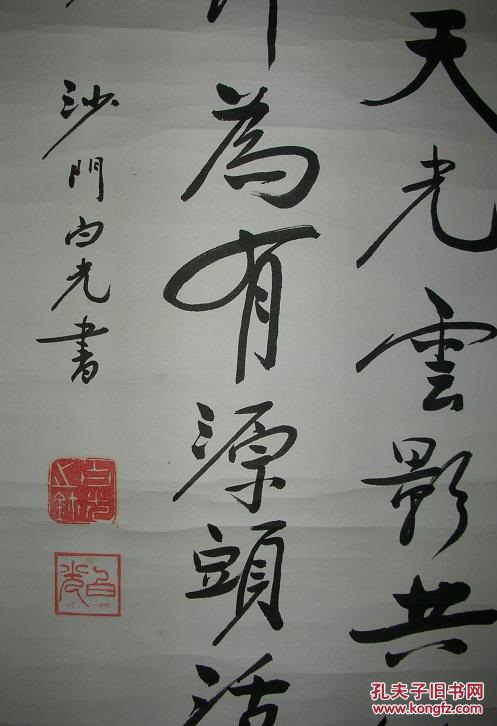 天光雲影共
為有源頭活
沙門白光書
孔夫子旧书网
www.kongfz.com